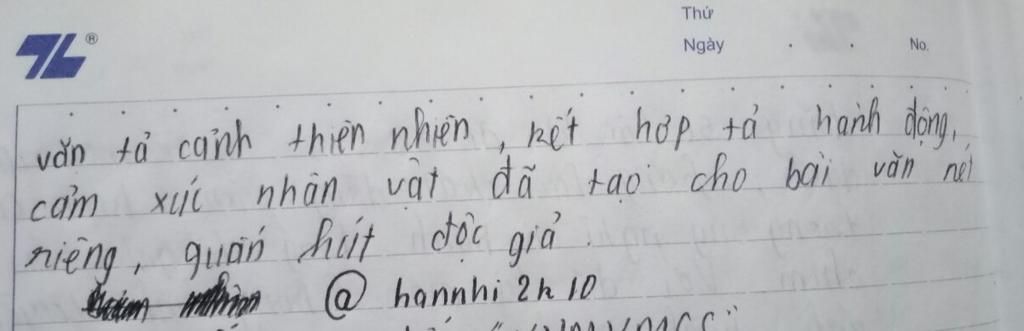 Thứ
Ngày . . No.
TL®
văn tả cảnh thiên nhiên, kết hợp tả hành động,
cảm xúc nhân vật đã tạo cho bài văn nét
riêng, quấn hút độc giả.
@ hannhi 2h 10